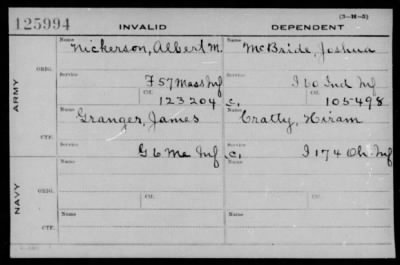 (3-H-5)
125994 INVALID DEPENDENT
Name Name
Nickerson, Albert M. McBride, Joshua
ORIG.
Service Service
F 57 Mass Inf I 60 Ind Inf
Ctf. Ctf.
123204 c. 105498
ARMY
Name Name
Granger, James Cratty, Hiram
CTF.
Service Service
G 6 Me Inf c. I 174 Oh Inf
Name Name
ORIG.
Service Ctf. Service Ctf.
NAVY
Name Name
CTF.